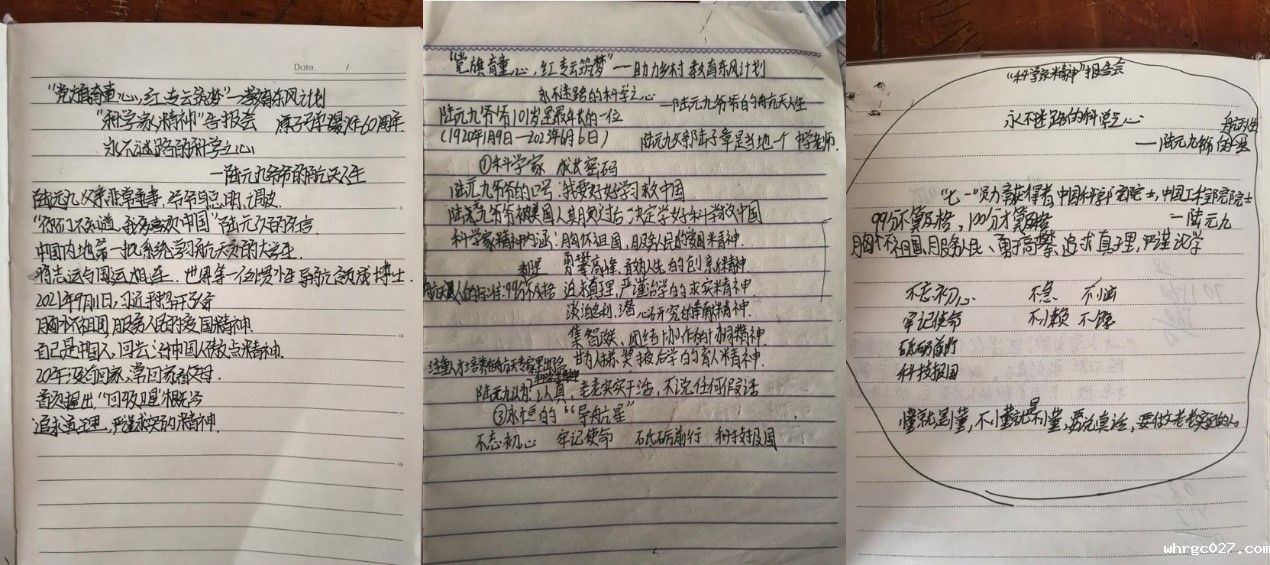 Date. /
"党旗育童心,红专云筑梦"—教育东风计划
"科学家精神"告报会 原子弹爆炸60周年
永不迷路的科学之心
—陆元九爷爷的航天人生
陆元九父亲非常重事,爷爷自己聪明、调皮.
"你们不知道,我多喜欢中国"陆元九的宛言
中国内地第一批系统学习航天领的大学生.
将志运与国运相连. 世界第一位惯性导航领域博士.
2021年9月11日,习近平召开了会
胸怀祖国,服务人民的爱国精神.
自己是中国人,回去、给中国人做点精神.
20年没有回家,常回家看父母.
首次提出"回收卫星"概念
追求真理,严谨求实的精神.
"党旗育童心,红专云筑梦"—助力乡村教育东风计划
永不迷路的科学之心
—陆元九爷爷的航天人生
陆元九爷爷101岁是最年长的一位
(1920年1月9日—2023年6月6日) 陆元九父亲陆子章是当地一个中学老师.
①科学家 成长密码
陆元九爷爷的口号:我要好好学习救中国
陆元九爷爷被美国人臭骂过后,决定学好科学救中国
科学家精神内涵:胸怀祖国,服务人民的爱国精神.
勇攀高峰,敢为人先的创新精神.
航天人的标准:99分不及格 追求真理,严谨治学的求实精神
淡泊名利,潜心研究的奉献精神.
集智攻关、团结协作的协同精神.
甘为人梯,奖掖后学的育人精神.
注重人才培养在航天专家里出名
陆元九认为:认真,老老实实干活,不说任何假话
③永恒的"导航星"
不忘初心 牢记使命 砥砺前行 科技报国
"科学家精神"报告会
永不迷路的科学之心
—陆元九爷爷的航天人生
"七一"勋章获得者,中国科学院院士,中国工程院院士
99分不算及格,100分才算及格 —陆元九
胸怀祖国,服务人民、勇于高攀,追求真理,严谨治学
不忘初心 不急 不恼
牢记使命 不懒
砥砺前行
科技报国
懂就是懂,不懂就是不懂,要说真话,要做老老实实的人.
whrgc027.com